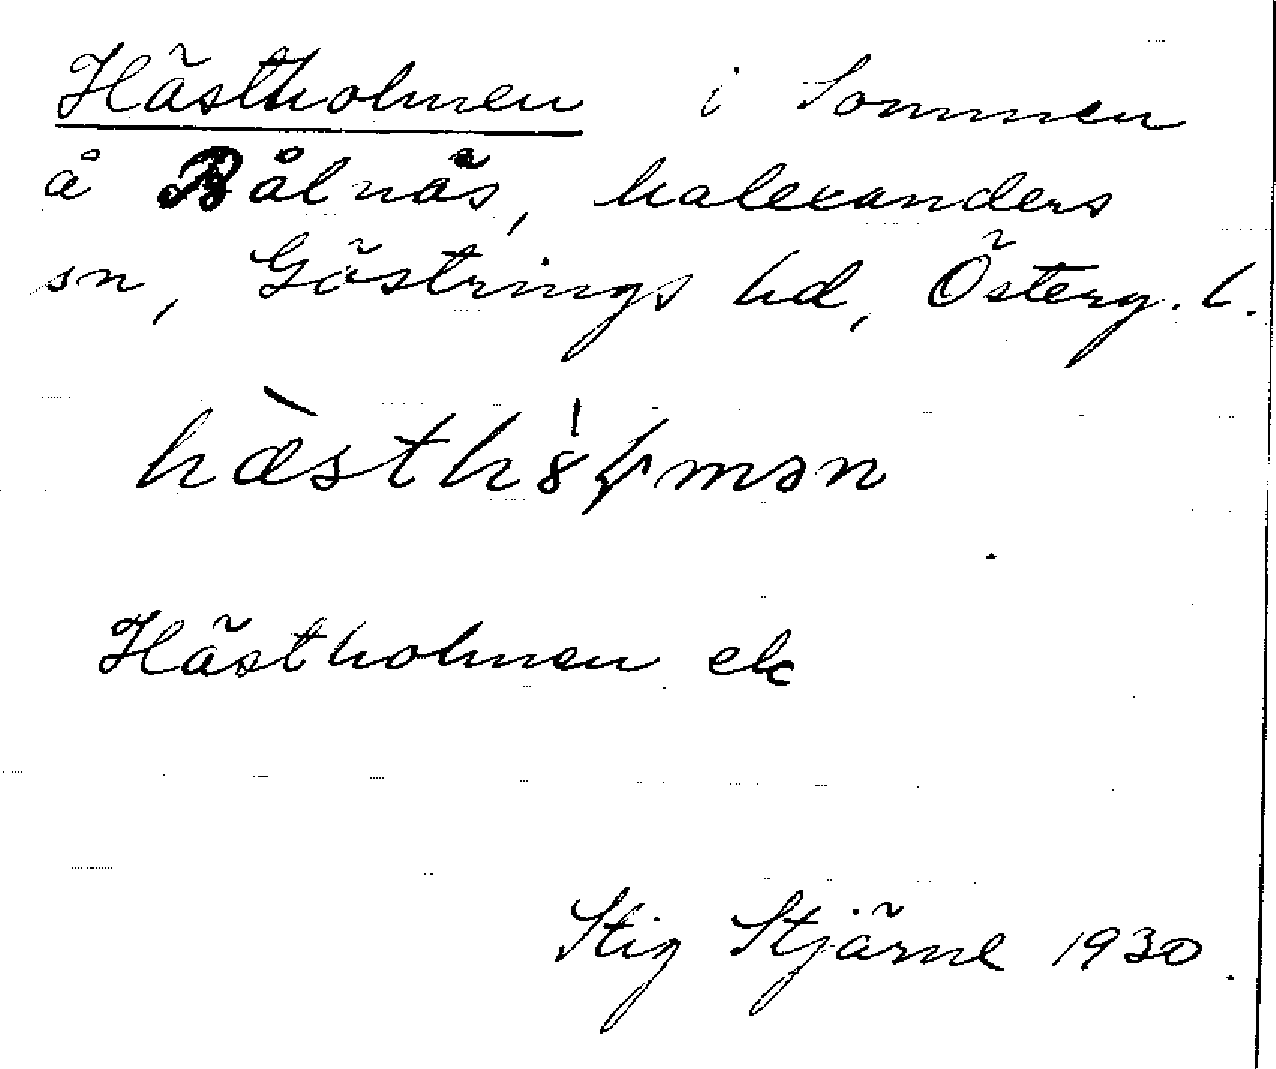 Hästholmen i Sommen
å Bålnäs, Malexanders
sn, Göstrings hd, Österg. l.
Hästholmen ek
Stig Stjärne 1930